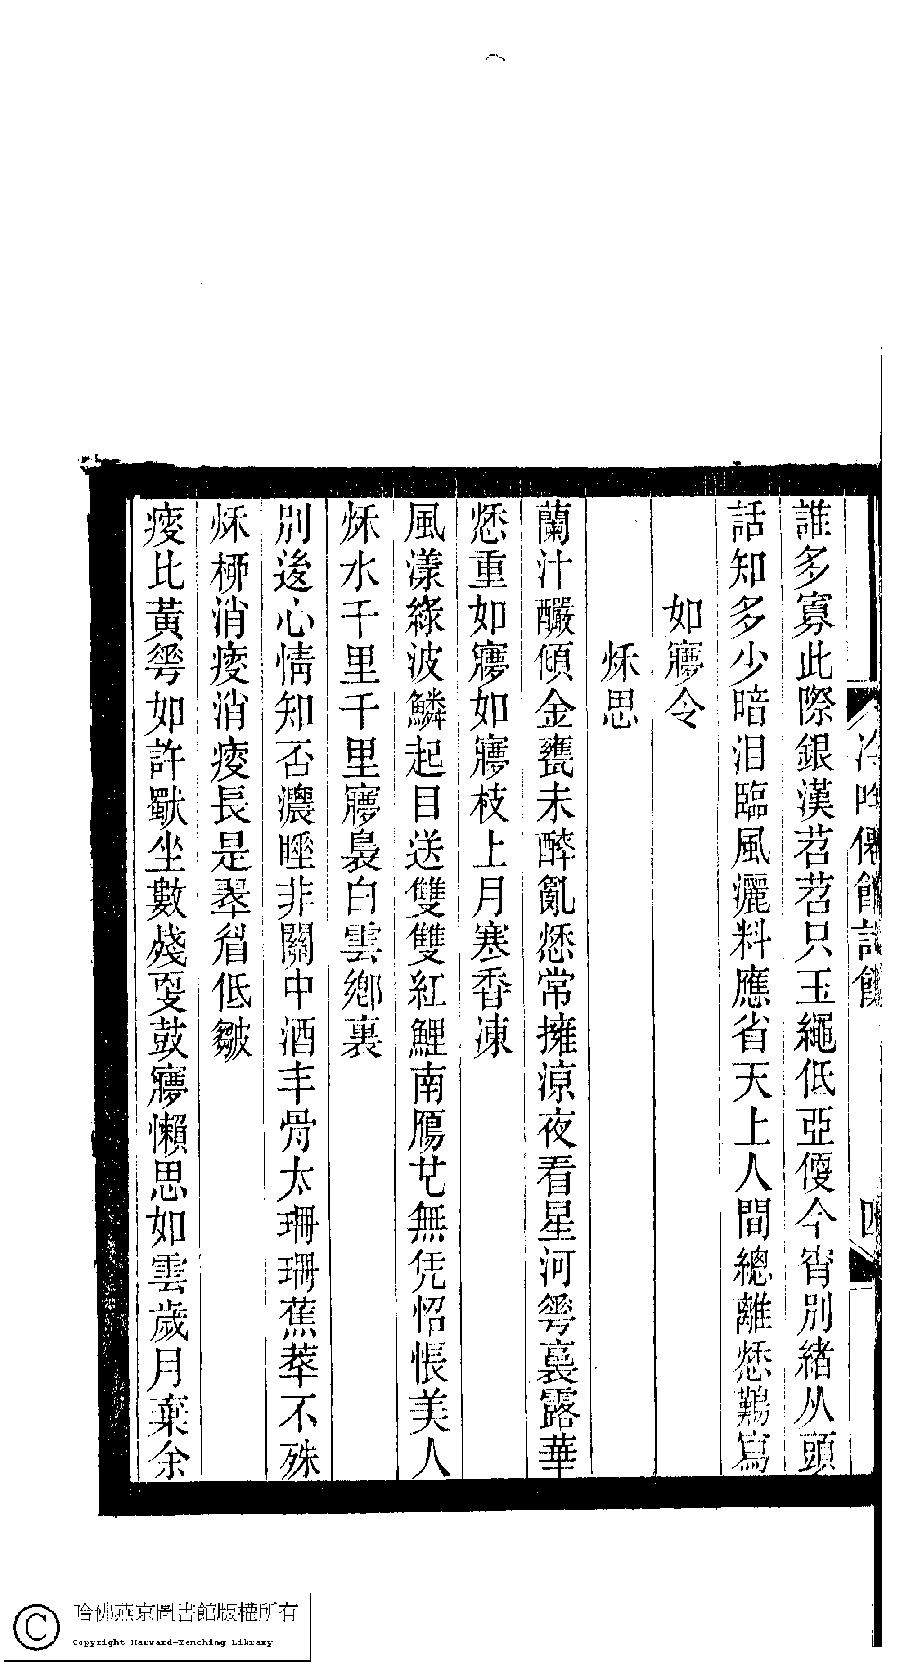 誰多寡此際銀漢苕苕只玉繩低亞優今宵別緒从頭
話知多少暗泪臨風灑料應省天上人間總離愁難寫
如㝱令
秌思
蘭汁釅傾金甕未醉亂愁常擁涼夜看星河䓿裏露華
愁重如㝱如㝱枝上月寒香凍
風漾綠波鱗起目送雙雙紅鯉南鴈也無凭怊悵美人
秌水千里千里㝱裊白雲鄉裏
別後心情知否濃睡非關中酒丰骨太珊珊蕉萃不殊
秌桺消瘦消瘦長是翠眉低皺
瘦比黃䓿如許獸坐數殘更鼓㝱懶思如雲歲月棄余
冷吟僊館詩餘
四
哈佛燕京圖書館版權所有
Copyright Harvard-Yenching Library